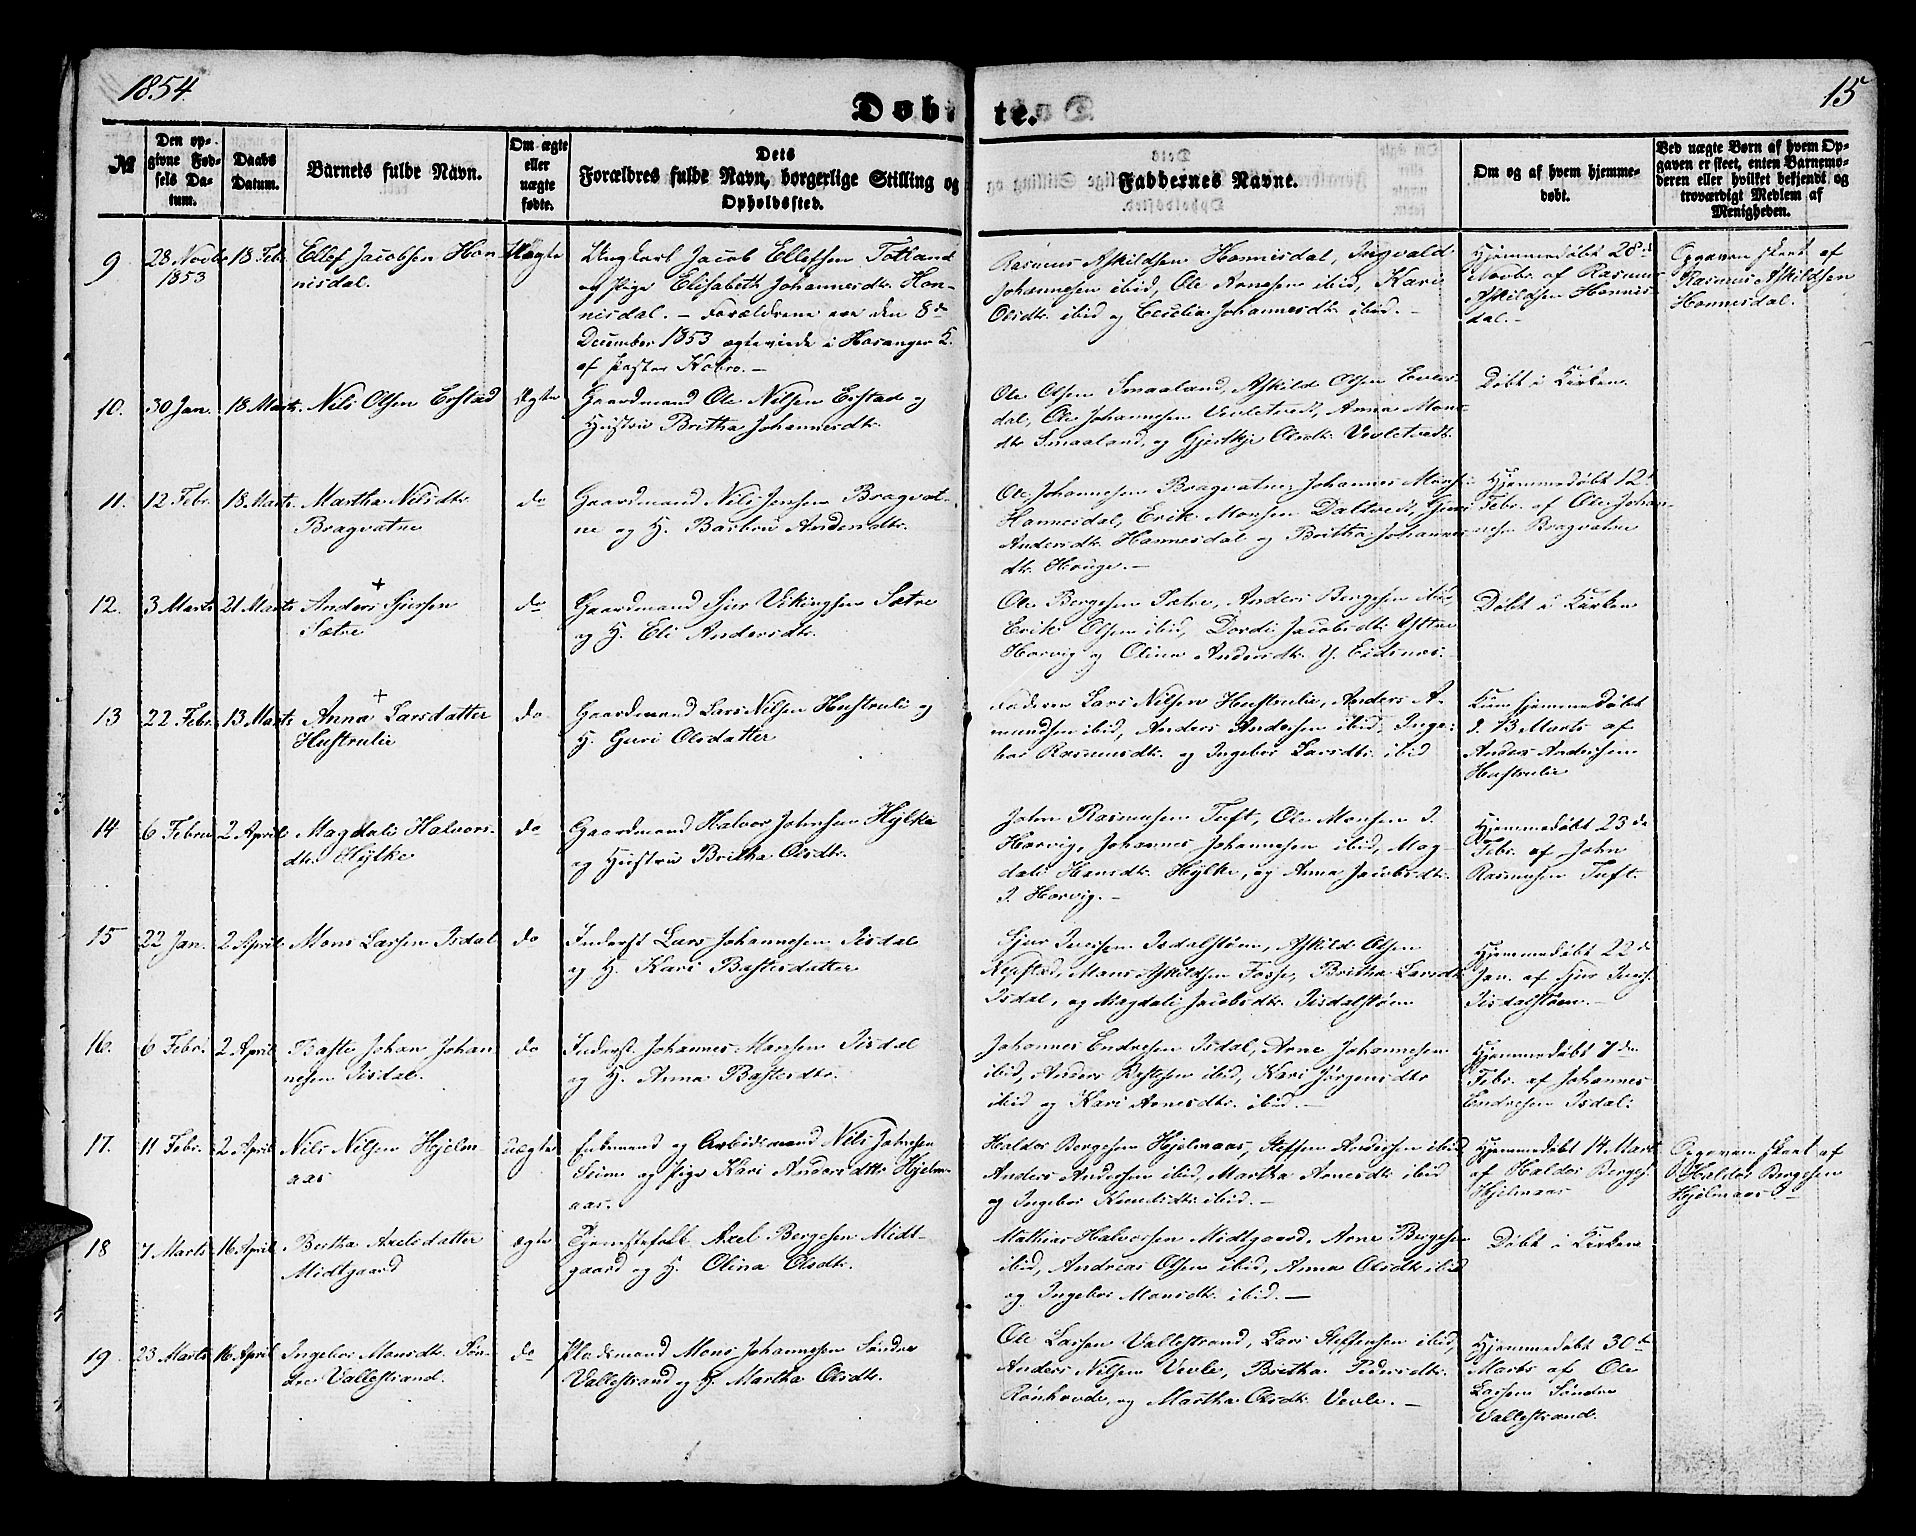 1854.
15
Døbte.
№
Den opgivne Fødsels Datum.
Daabs Datum.
Barnets fulde Navn.
Om ægte eller uægte fødte.
Dets Forældres fulde Navn, borgerlige Stilling og Opholdssted.
Faddernes Navne.
Om og af hvem hjemmedøbt.
Ved uægte Børn af hvem Opgaven er skeet, enten Barnemoderen eller hvilket bekjendt og troværdigt Medlem af Menigheden.
9
28 Novbr 1853
18 Febr.
Ellef Jacobsen Hon-
nisdal.
Uægte
Ungkarl Jacob Ellefsen Totland
og Pige Elisabeth Johannesdtr. Hon-
nisdal. - Forældrene ere den 8de
December 1853 ægteviede i Hosanger K.
af Pastor Kobro. -
Rasmus Askildsen Honnisdal, Ingvald
Johannesen ibid, Ole Arnesen ibid, Kari
Olsdtr. ibid og Cecilia Johannesdtr. ibid. -
Hjemmedøbt 28de
Novbr. af Rasmus
Askildsen Honnis-
dal. -
Opgaven skeet af
Rasmus Askildsen
Honnesdal.
10.
30 Jan.
18 Marts.
Nils Olsen Eistad
Ægte
Gaardmand Ole Nilsen Eistad og
Hustru Britha Johannesdtr.
Ole Olsen Smaaland, Askild Olsen
dal, Ole Johannesen Vevletvedt, Anna Mons-
dtr. Smaaland, og Gjertkje Olsdtr. Vevletvedt.
Døbt i Kirken.
11.
12 Febr.
18 Marts
Martha Nilsdtr.
Bragvatne
do
Gaardmand Nils Jensen Bragvat-
ne og H. Barbru Andersdtr.
Ole Johannesen Bragvatne, Johannes Mons.
Honnesdal, Erik Monsen Daltvedt, Guri
Andersdtr. Honnesdal og Britha Johannes-
dtr. Hauge. -
Hjemmedøbt 12te
Febr. af Ole Johan-
nesen Bragvatne
12.
3 Marts
21 Marts
Anders + Sjursen
Sætre
do
Gaardmand Sjur Vikingsen Sætre
og H. Eli Andersdtr.
Ole Bergesen Sætre, Anders Bergesen ibid,
Erik Olsen ibid, Dordei Jacobsdtr. Ytre
Horvig og Olina Andersdtr. Y. Eidsnes. -
Døbt i Kirken
13
22 Febr.
13 Marts
Anna + Larsdatter
Hustrulie
do
Gaardmand Lars Nilsen Hustruli og
H. Guri Olsdatter
Faderen Lars Nilsen Hustrulie, Anders A-
mundsen ibid, Anders Andersen ibid, Inge-
bor Rasmusdtr. og Ingebor Larsdtr. ibid
Kun hjemmedøbt
d. 13 Marts af
Anders Andersen
Hustrulie
14
6 Febru
2 April
Magdali Halvors-
dtr. Hylke
do
Gaardmand Halvor Johnsen Hylke
og Hustru Britha Olsdtr.
John Rasmusen Tuft, Ole Monsen I.
Horvig, Johannes Johannesen ibid, Mag-
dali Hansdtr. Hylke, og Anna Jacobsdtr.
I. Horvig. -
Hjemmedøbt 23de
Febr. af John
Rasmusen Tuft.
15
22 Jan.
2 April
Mons Larsen Isdal
do
Inderst Lars Johannesen Isdal
og H. Kari Bastesdatter
Sjur Iversen Isdalstøen, Askild Olsen
Kepstad, Mons Askildsen Fosse, Britha Larsdtr.
Isdal, og Magdali Jacobsdtr. Isdalstøen
Hjemmedøbt 22de
Jan. af Sjur Ivers.
Isdalstøen. -
16.
6 Febr.
2 April
Baste Johan Johan-
nesen Isdal.
do
Inderst Johannes Monsen Isdal
og H. Anna Bastesdtr.
Johannes Endresen Isdal, Arne Johannesen
ibid, Anders Restesen ibid, Kari Jørgensdtr
ibid og Kari Arnesdtr. ibid. -
Hjemmedøbt 7de
Febr. af Johannes
Endresen Isdal.
17.
11 Febr.
2 April
Nils Nilsen Hjelm-
aas
uægte
Enkemand og Arbeidsmand Nils Johnsen
Seim og Pige Kari Andersdtr. Hjelm-
aas.
Haldor Bergesen Hjelmaas, Steffen Andersen ibid
Anders Andersen ibid, Martha Arnesdtr. ibid
og Ingebor Knudsdtr. ibid. -
Hjemmedøbt 14 Marts
af Haldor Berges.
Hjelmaas
Opgaven skeet af
Haldor Bergesen
Hjelmaas
18
7 Marts
16 April
Britha Axelsdatter
Midtgaard
ægte
Tjenestefolk Axel Bergesen Midt-
gaard og H. Olina Olsdtr.
Mathias Halvorsen Midtgaard, Arne Bergesen
ibid, Andreas Olsen ibid, Anna Olsdtr. ibid
og Ingebor Monsdtr. ibid. -
Døbt i Kirken
19
23 Marts
16 April
Ingebor Monsdtr. Søn-
dre Vallestrand.
do
Pladsmand Mons Johannesen Søndre
Vallestrand og H. Martha Olsdtr.
Ole Larsen Vallestrand, Lars Steffensen ibid,
Anders Nilsen Vevle, Britha Pedersdtr.
Rønhovde, og Martha Olsdtr. Vevle. -
Hjemmedøbt 30te
Marts af Ole
Larsen Søndre
Vallestrand.